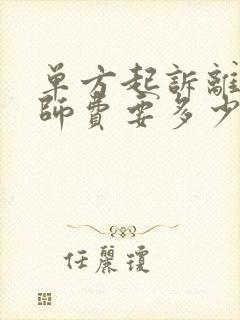 單方起訴離
師費要多少
任麗瓊